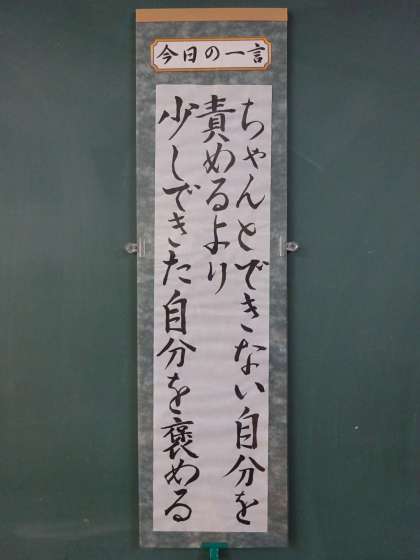 今日の一言
ちゃんとできない自分を
責めるより
少しできた自分を褒める